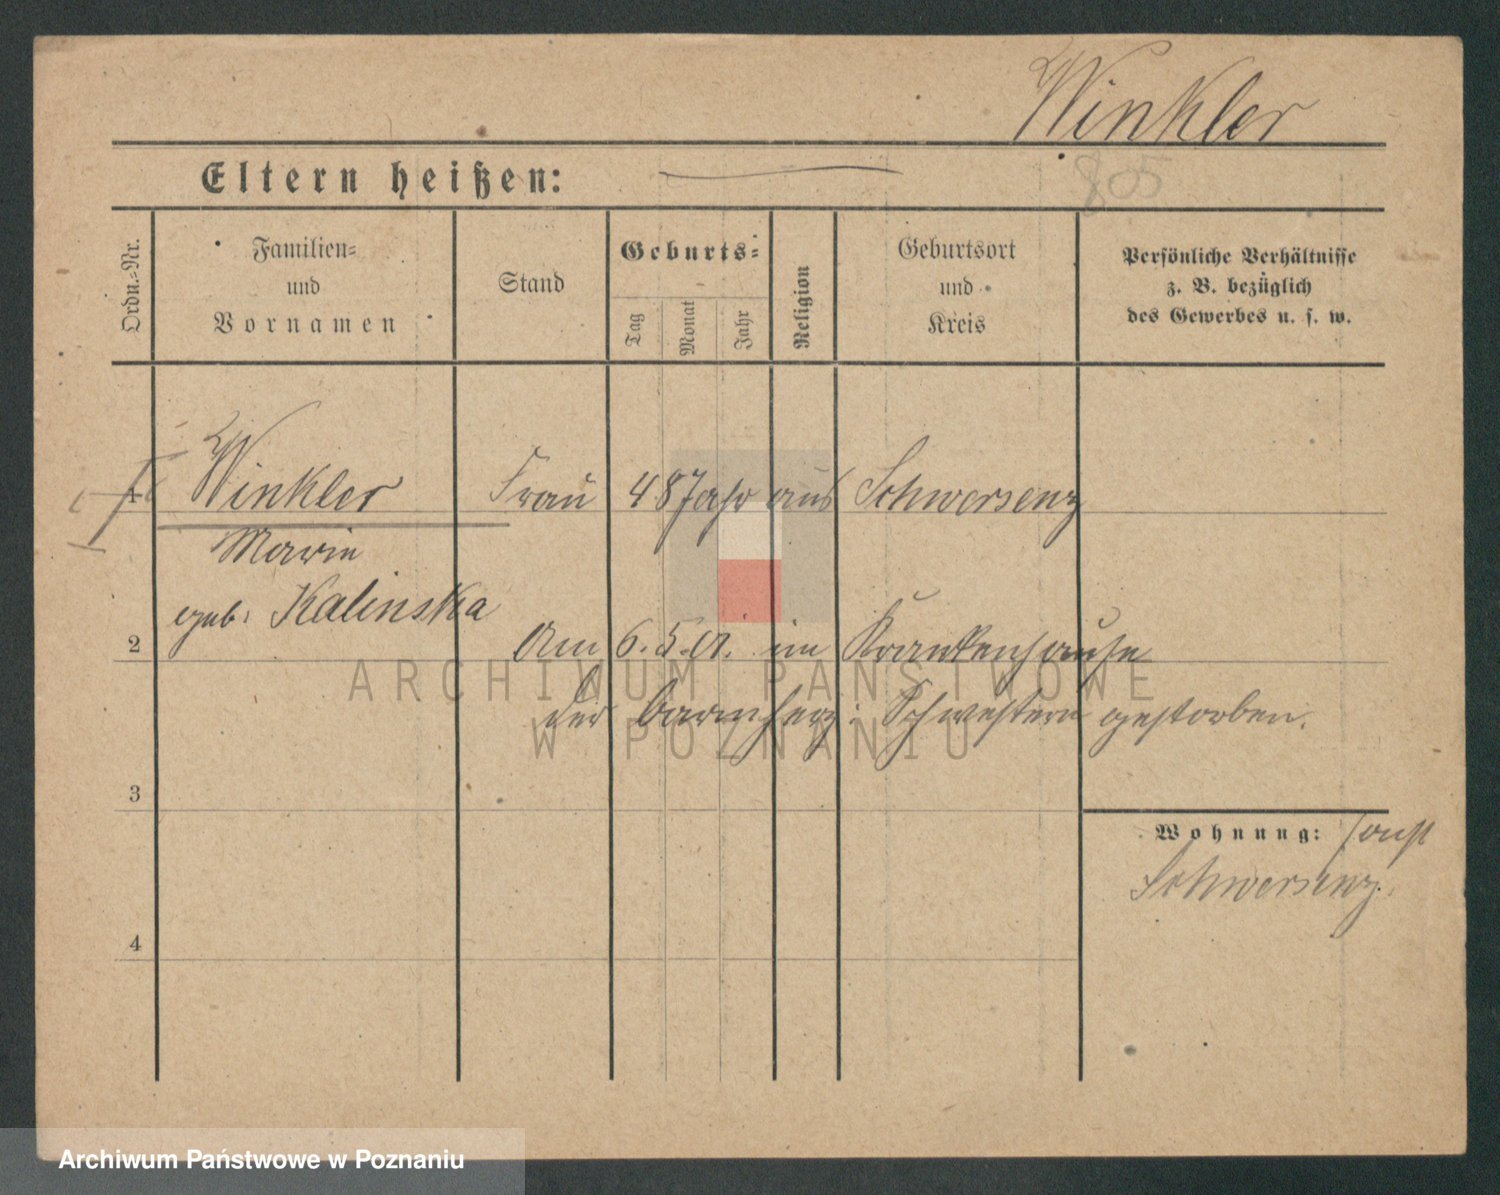 Winkler
805
Eltern heißen:
Ordn.-Nr.
Familien-
und
Vornamen
Stand
Geburts-
Tag
Monat
Jahr
Religion
Geburtsort
und
Kreis
Persönliche Verhältnisse
z. B. bezüglich
des Gewerbes u. s. w.
1 Winkler Frau 48 Jahr aus Schwersenz
Marie
geb: Kalinska
2 Am 6.5.01. im Krankenhause
der barmherz: Schwestern gestorben.
3
Wohnung: sonst
Schwersenz.
4
ARCHIWUM PAŃSTWOWE
W POZNANIU
Archiwum Państwowe w Poznaniu